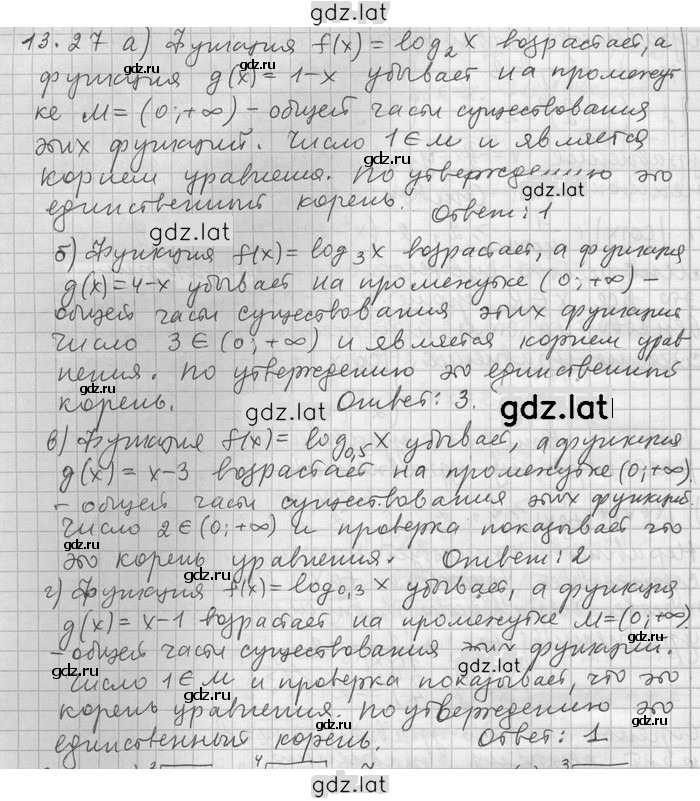 gdz.lat
13.27 а) Функция f(x) = log₂ x возрастает, а
функция g(x) = 1-x убывает на промежут
ке M = (0;+∞) - общей части существования
этих функций. Число 1 ∈ M и является
корнем уравнения. По утверждению это
единственный корень. Ответ: 1
б) Функция f(x) = log₃ x возрастает, а функция
g(x) = 4-x убывает на промежутке (0;+∞) -
общей части существования этих функция
Число 3 ∈ (0;+∞) и является корнем урав
нения. По утверждению это единственный
корень. Ответ: 3.
в) Функция f(x) = log₀,₅ x убывает, а функция
g(x) = x-3 возрастает на промежутке (0;+∞)
- общей части существования этих функций.
Число 2 ∈ (0;+∞) и проверка показывает что
это корень уравнения. Ответ: 2
г) Функция f(x) = log₀,₃ x убывает, а функция
g(x) = x-1 возрастает на промежутке M = (0;+∞)
- общей части существования этих функций.
Число 1 ∈ M и проверка показывает, что это
корень уравнения. По утверждению это
единственный корень. Ответ: 1
gdz.lat